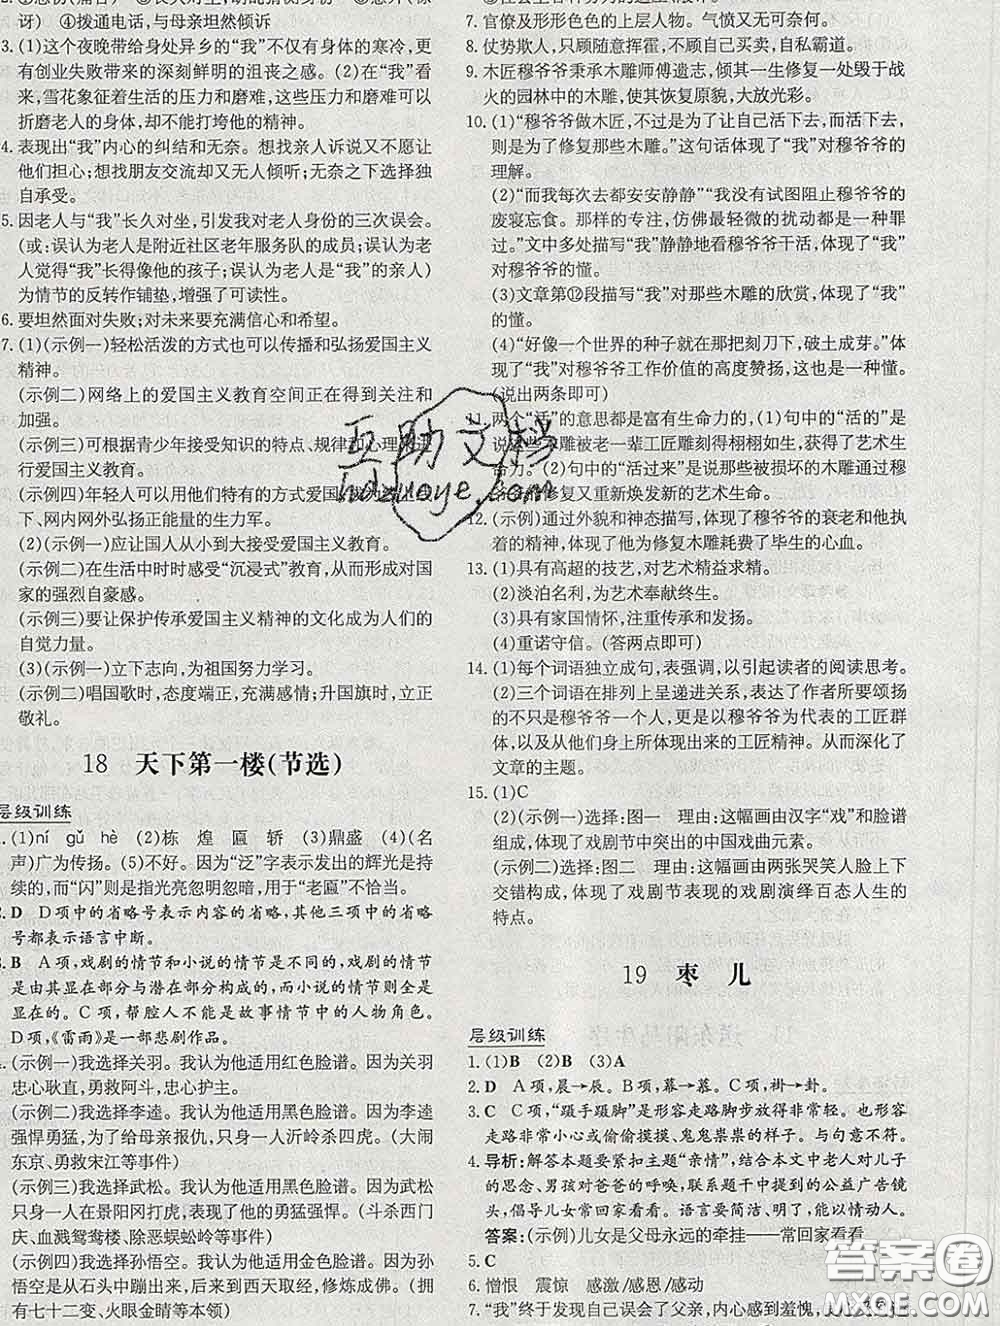 讶) ④拨通电话,与母亲坦然倾诉
3. (1)这个夜晚带给身处异乡的“我”不仅有身体的寒冷,更
有创业失败带来的深刻鲜明的沮丧之感。(2)在“我”看
来,雪花象征着生活的压力和磨难,这些压力和磨难可以
折磨老人的身体,却不能打垮他的精神。
4. 表现出“我”内心的纠结和无奈。想找亲人诉说又不愿让
他们担心;想找朋友交流却又无人倾听;无奈之下选择独
自承受。
5. 因老人与“我”长久对坐,引发我对老人身份的三次误会。
(或:误认为老人是附近社区老年服务队的成员;误认为老
人觉得“我”长得像他的孩子;误认为老人是“我”的亲人)
为情节的反转作铺垫,增强了可读性。
6. 要坦然面对失败;对未来要充满信心和希望。
7. (1)(示例一)轻松活泼的方式也可以传播和弘扬爱国主义
精神。
(示例二)网络上的爱国主义教育空间正在得到关注和
加强。
(示例三)可根据青少年接受知识的特点、规律和心理来进
行爱国主义教育。
(示例四)年轻人可以用他们特有的方式爱国,成为线上线
下、网内网外弘扬正能量的生力军。
(2)(示例一)应让国人从小到大接受爱国主义教育。
(示例二)在生活中时时感受“沉浸式”教育,从而形成对国
家的强烈自豪感。
(示例三)要让保护传承爱国主义精神的文化成为人们的
自觉力量。
(3)(示例一)立下志向,为祖国努力学习。
(示例二)唱国歌时,态度端正,充满感情;升国旗时,立正
敬礼。
18 天下第一楼(节选)
层级训练
1. (1)ní gǔ hè (2)栋 煌 匾 轿 (3)鼎盛 (4)(名
声)广为传扬。(5)不好。因为“泛”字表示发出的辉光是持
续的,而“闪”则是指光亮忽明忽暗,用于“老匾”不恰当。
2. D D项中的省略号表示内容的省略,其他三项中的省略
号都表示语言中断。
3. B A项,戏剧的情节和小说的情节是不同的,戏剧的情节
是由其显在部分与潜在部分构成的,而小说的情节则全是
显在的。C项,帮腔人不能是故事情境中的人物角色。
D项,《雷雨》是一部悲剧作品。
4. (示例一)我选择关羽。我认为他适用红色脸谱。因为关羽
忠心耿直,勇救阿斗,忠心护主。
(示例二)我选择李逵。我认为他适用黑色脸谱。因为李逵
强悍勇猛,为了给母亲报仇,只身一人沂岭杀四虎。(大闹
东京、勇救宋江等事件)
(示例三)我选择武松。我认为他适用黑色脸谱。因为武松
只身一人在景阳冈打虎,表现了他的勇猛强悍。(斗杀西门
庆、血溅鸳鸯楼、除恶蜈蚣岭等事件)
(示例四)我选择孙悟空。我认为他适用金色脸谱。因为孙
悟空是从石头中蹦出来,后来到西天取经,修炼成佛。(拥
有七十二变、火眼金睛等本领)
7. 官僚及形形色色的上层人物。气愤又无可奈何。
8. 仗势欺人,只顾随意挥霍,不顾自己买卖,自私霸道。
9. 木匠穆爷爷秉承木雕师傅遗志,倾其一生修复一处毁于战
火的园林中的木雕,使其恢复原貌,大放光彩。
10. (1)“穆爷爷做木匠,不过是为了让自己活下去,而活下去,
则是为了修复那些木雕。”这句话体现了“我”对穆爷爷的
理解。
(2)“而我每次去都安安静静”“我没有试图阻止穆爷爷的
废寝忘食。那样的专注,仿佛最轻微的扰动都是一种罪
过。”文中多处描写“我”静静地看穆爷爷干活,体现了“我”
对穆爷爷的懂。
(3)文章第⑫段描写“我”对那些木雕的欣赏,体现了“我”
的懂。
(4)“好像一个世界的种子就在那把刻刀下,破土成芽。”体
现了“我”对穆爷爷工作价值的高度赞扬,这也是一种懂。
(说出两条即可)
11. 两个“活”的意思都是富有生命力的,(1)句中的“活的”是
说这些木雕被以前的老一辈工匠雕刻得栩栩如生,获得了艺术生
命力。(2)句中的“活过来”是说那些被损坏的木雕通过穆
爷爷的修复又重新焕发新的艺术生命。
12. (示例)通过外貌和神态描写,体现了穆爷爷的衰老和他执
着的精神,体现了他为修复木雕耗费了毕生的心血。
13. (1)具有高超的技艺,对艺术精益求精。
(2)淡泊名利,为艺术奉献终生。
(3)具有家国情怀,注重传承和发扬。
(4)重诺守信。(答两点即可)
14. (1)每个词语独立成句,表强调,以引起读者的阅读思考。
(2)三个词语在排列上呈递进关系,表达了作者所要颂扬
的不只是穆爷爷一个人,更是以穆爷爷为代表的工匠群
体,以及从他们身上所体现出来的工匠精神。从而深化了
文章的主题。
15. (1)C
(2)(示例一)选择:图一 理由:这幅画由汉字“戏”和脸谱
组成,体现了戏剧节中突出的中国戏曲元素。
(示例二)选择:图二 理由:这幅画由两张哭笑人脸上下
交错构成,体现了戏剧节表现的戏剧演绎百态人生的
特点。
19 枣 儿
层级训练
1. (1)B (2)B (3)A
2. D A项,晨→辰。B项,幕→慕。C项,褂→卦。
3. C C项,“蹑手蹑脚”是形容走路脚步放得非常轻。也形容
走路非常小心或偷偷摸摸、鬼鬼祟祟的样子。与句意不符。
4. 导析:解答本题要紧扣主题“亲情”,结合本文中老人对儿子
的思念、男孩对爸爸的呼唤,联系题干中提到的公益广告镜
头,倡导儿女常回家看看。语言要简洁、明了,能以情动人。
答案:(示例)儿女是父母永远的牵挂——常回家看看。
5. C
6. 憎恨 震惊 感激/感恩/感动
7. “我”终于发现自己误会了父亲,内心感到羞愧,
互助文档
hdzuoye.com
答案圈
MXQE.COM